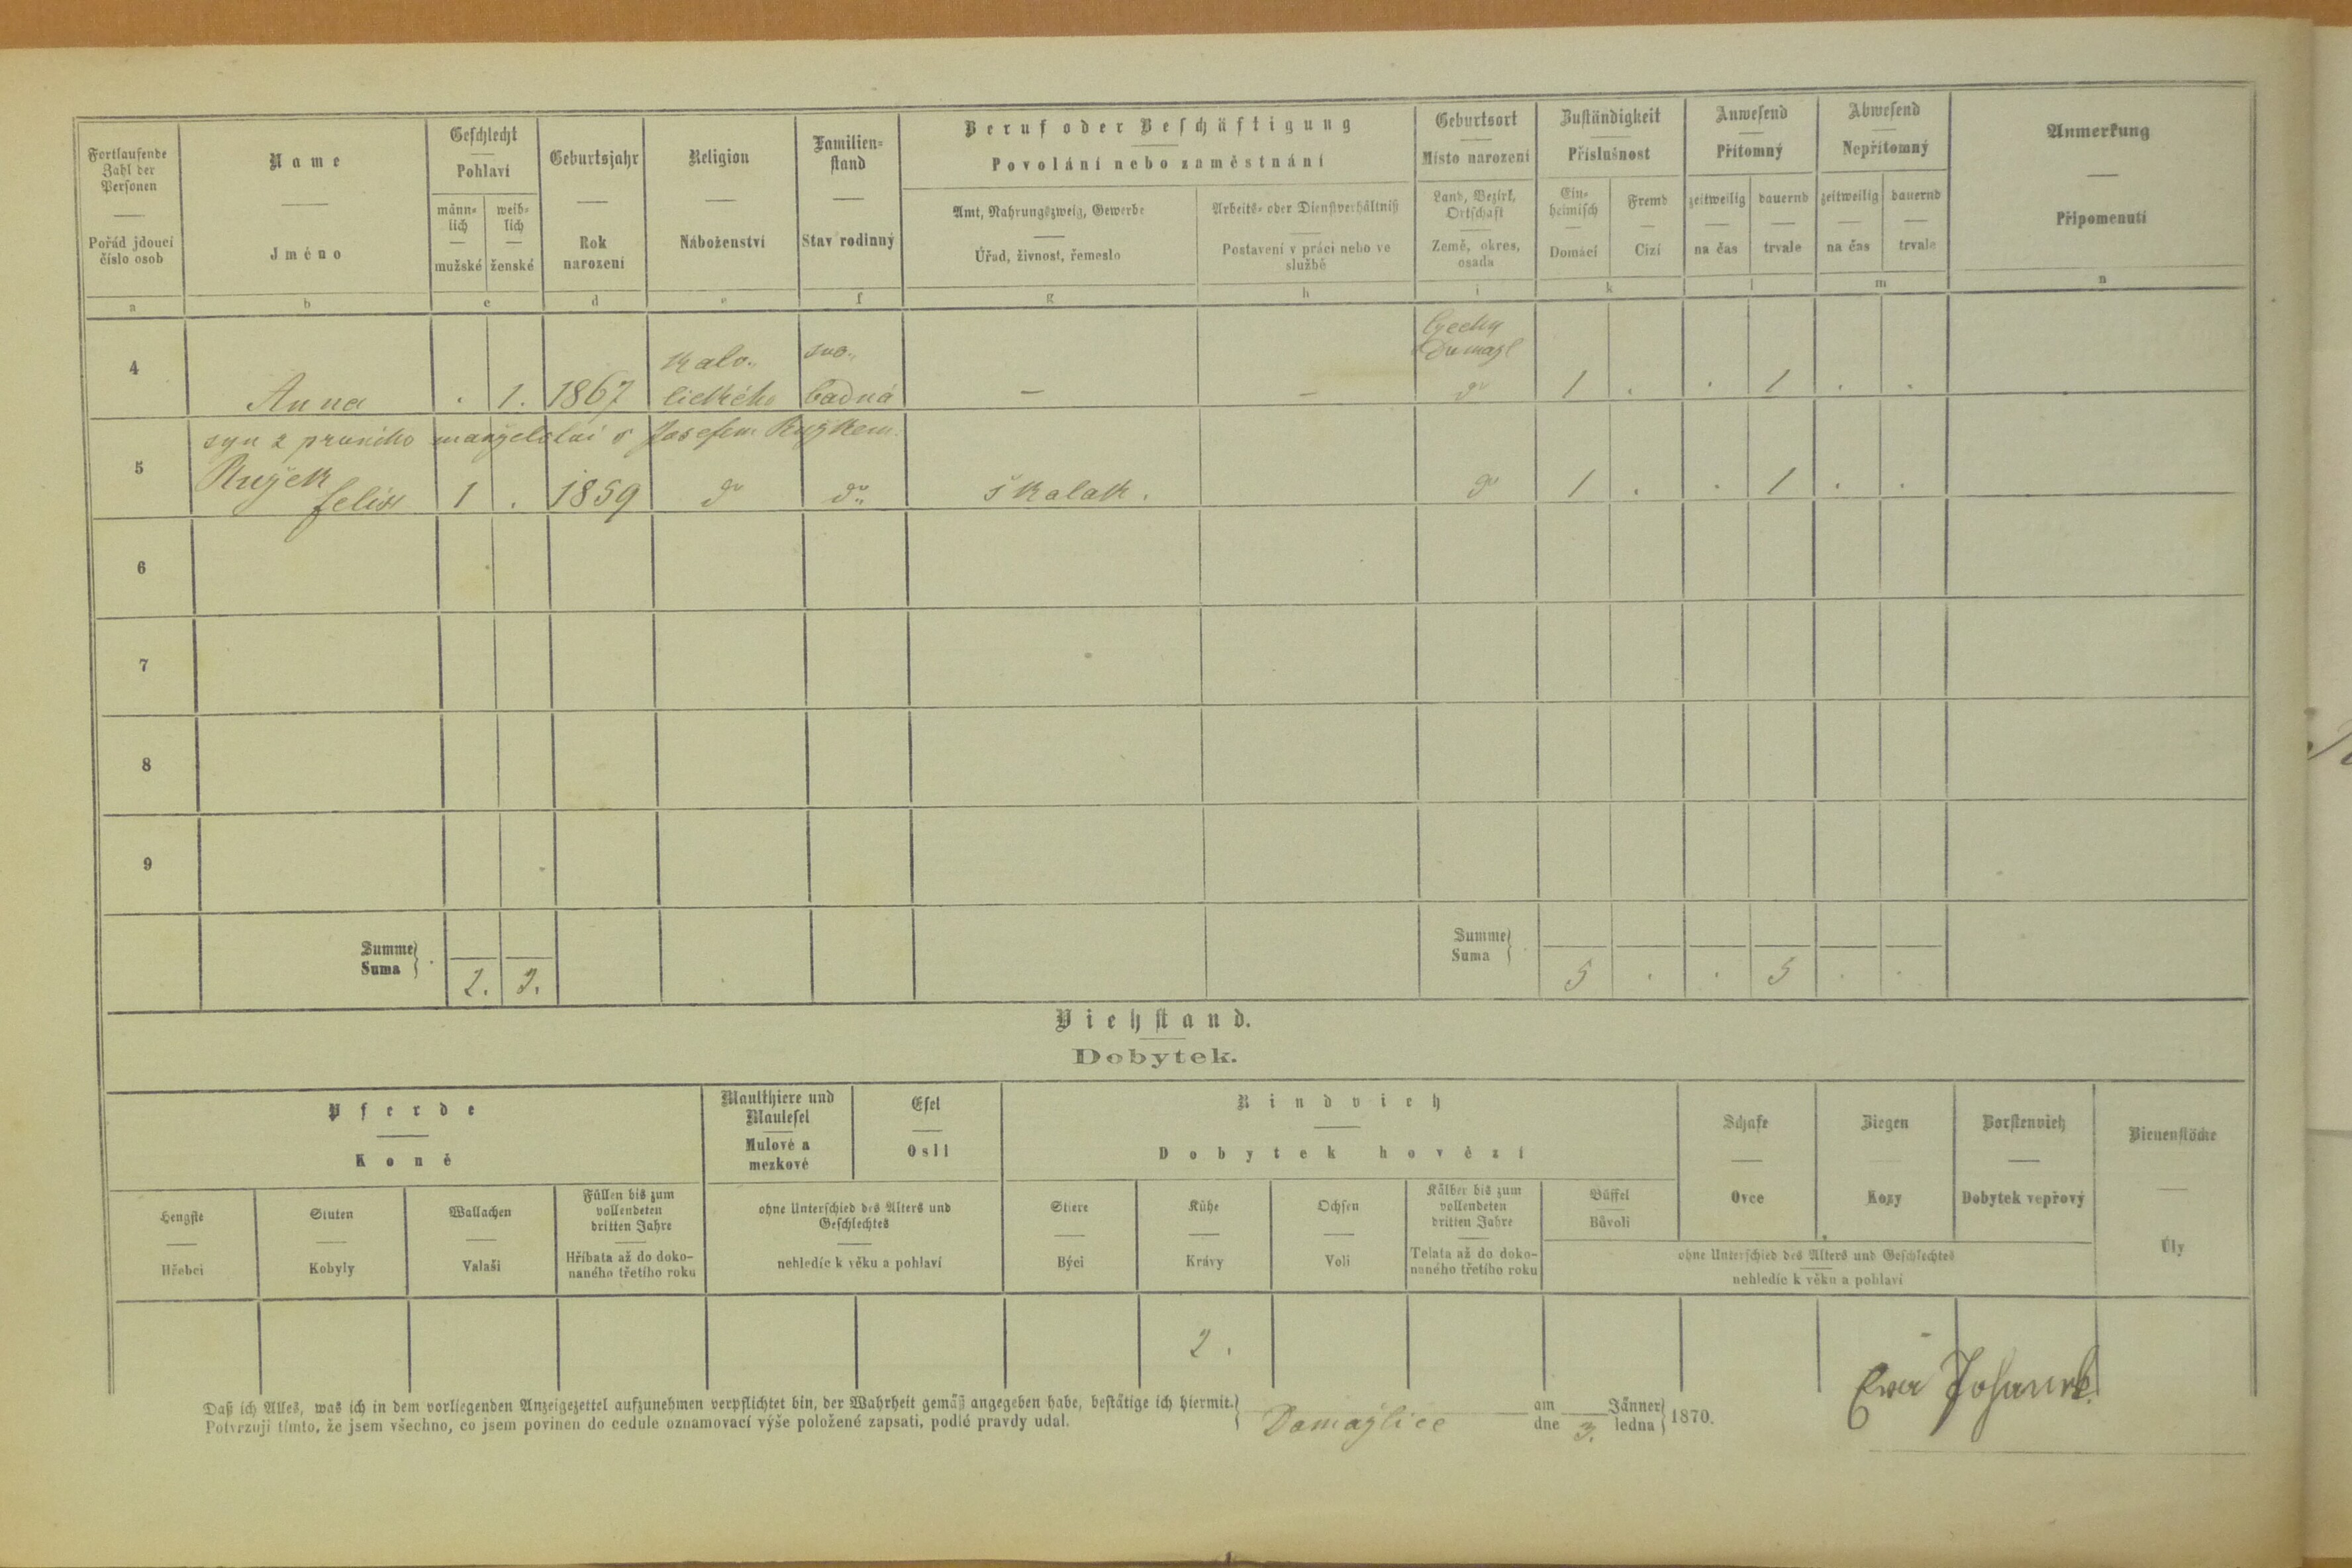 Fortlaufende Zahl der Personen
Pořád jdoucí číslo osob
Name
Jméno
Geschlecht
Pohlaví
männlich
mužské
weiblich
ženské
Geburtsjahr
Rok narození
Religion
Náboženství
Familienstand
Stav rodinný
Beruf oder Beschäftigung
Povolání nebo zaměstnání
Amt, Nahrungszweig, Gewerbe
Úřad, živnost, řemeslo
Arbeits- oder Dienstverhältniß
Postavení v práci nebo ve službě
Geburtsort
Místo narození
Land, Bezirk, Ortschaft
Země, okres, osada
Zuständigkeit
Příslušnost
Einheimisch
Domácí
Fremd
Cizí
Anwesend
Přítomný
zeitweilig
na čas
dauernd
trvale
Abwesend
Nepřítomný
zeitweilig
na čas
dauernd
trvale
Anmerkung
Připomenutí
a b c d e f g h i k l m n
4 Anna . 1. 1867 kato„ lického svo„ bodná — — Čechy Domažl do 1 . . 1 . .
syn z prvního manželství s Josefem Ružkem
5 Ružek Felix 1 . 1859 do do školák. do 1 . . 1 . .
6
7
8
9
Summe
Suma
2. 3.
Summe
Suma
5 . . 5 . .
Viehstand.
Dobytek.
Pferde
Koně
Maulthiere und Maulesel
Mulové a mezkové
Esel
Osli
Rindvieh
Dobytek hovězí
Schafe
Ovce
Ziegen
Kozy
Borstenvieh
Dobytek vepřový
Bienenstöcke
Úly
Hengste
Hřebci
Stuten
Kobyly
Wallachen
Valaši
Füllen bis zum vollendeten dritten Jahre
Hříbata až do dokonaného třetího roku
ohne Unterschied des Alters und Geschlechtes
nehledíc k věku a pohlaví
Stiere
Býci
Kühe
Krávy
Ochsen
Voli
Kälber bis zum vollendeten dritten Jahre
Telata až do dokonaného třetího roku
Büffel
Bůvoli
ohne Unterschied des Alters und Geschlechtes
nehledíc k věku a pohlaví
2.
Daß ich Alles, was ich in dem vorliegenden Anzeigezettel aufzunehmen verpflichtet bin, der Wahrheit gemäß angegeben habe, bestätige ich hiermit.
Potvrzuji tímto, že jsem všechno, co jsem povinen do cedule oznamovací výše položené zapsati, podlé pravdy udal.
Domažlice
am
dne
3.
Jänner
ledna
1870.